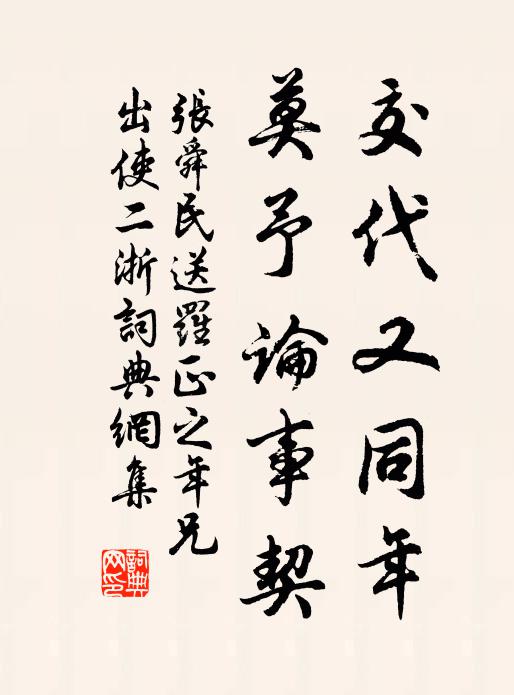 交代又同年
莫予論事契
張舜民送羅正之年兄
出使二浙詞典網集
詞典網印